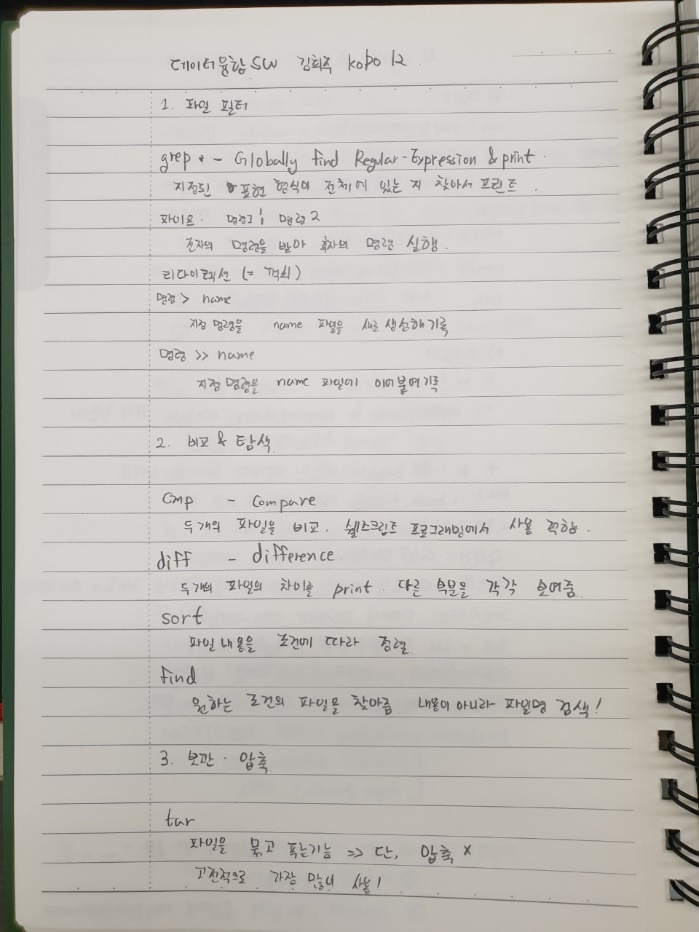 데이터융합SW 김희주 kopo 12
1. 파일 필터
grep - Globally find Regular-Expression & print.
지정된 표현 형식이 전체에 있는 지 찾아서 프린트.
파이프: 명령1 ¦ 명령2
전자의 명령을 받아 후자의 명령 실행.
리다이렉션 (= 꺽쇠)
명령 > name
지정 명령을 name 파일을 새로 생성해 기록
명령 >> name
지정 명령을 name 파일에 이어붙여기록
2. 비교 & 탐색
Cmp - Compare.
두개의 파일을 비교. 쉘스크립트 프로그래밍에서 사용
diff - difference
두개의 파일의 차이를 print. 다른 부분을 각각 보여줌
sort
파일 내용을 조건에 따라 정렬
find
원하는 조건의 파일을 찾아줌 내용이 아니라 파일명 검색!
3. 보관 · 압축
tar
파일을 묶고 푸는기능 => 단, 압축 X
고전적으로 가장 많이 사용!